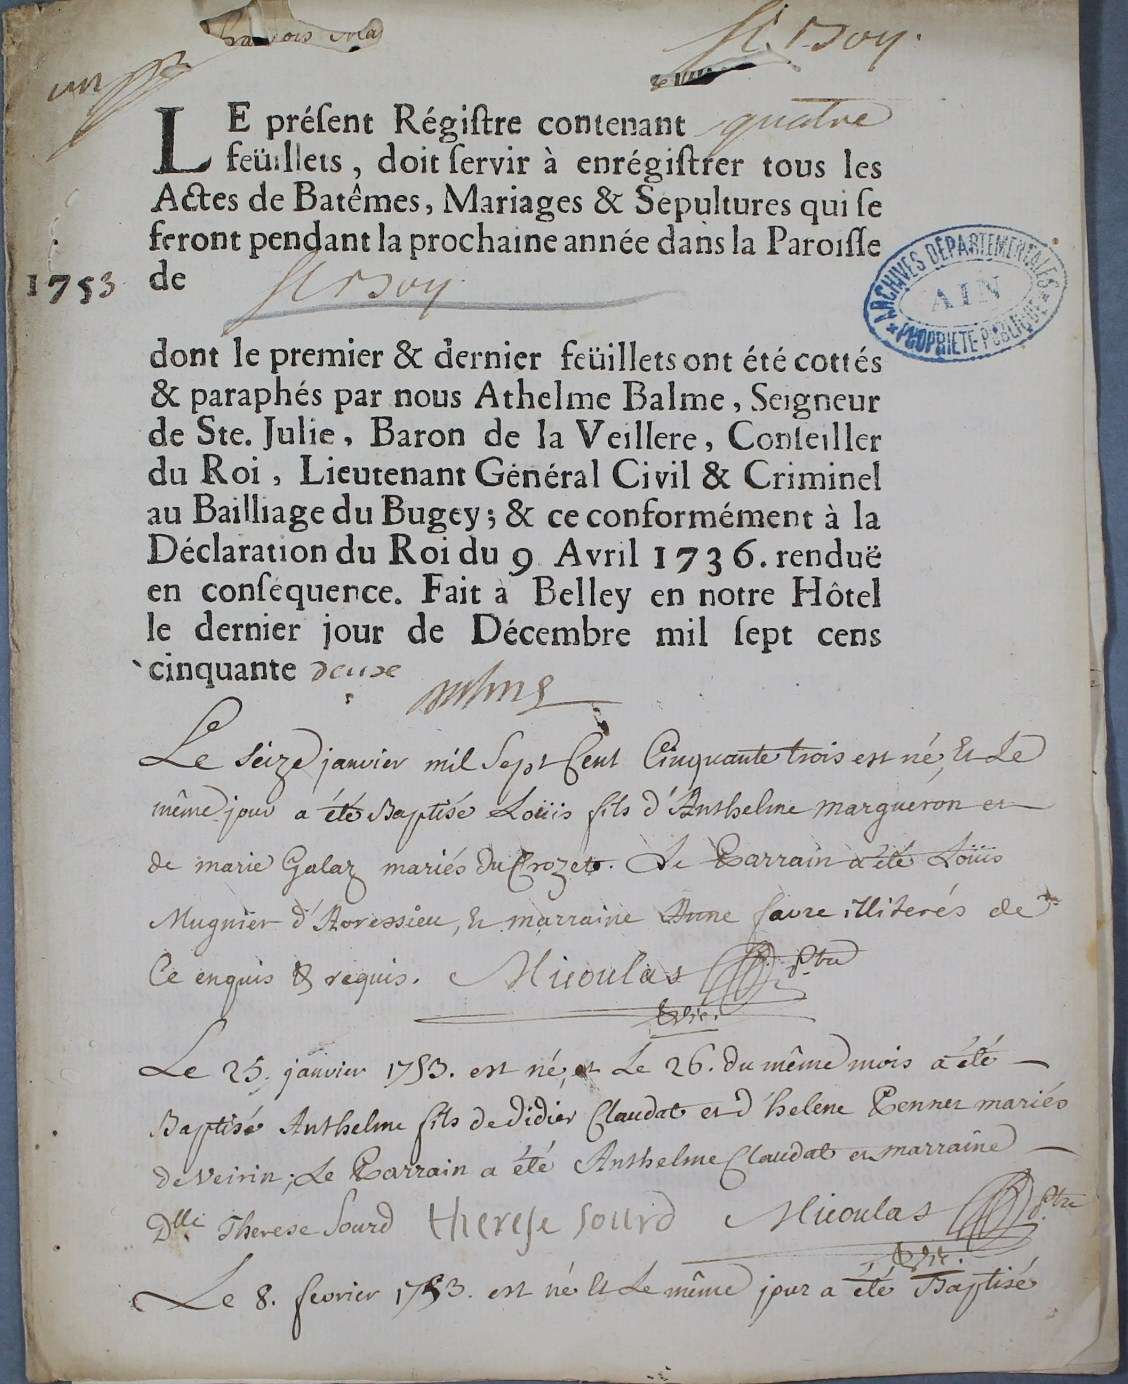 St. Bsoy.
LE préſent Régiſtre contenant quatre
feüillets, doit ſervir à enrégiſtrer tous les
Actes de Batêmes, Mariages & Sepultures qui ſe
feront pendant la prochaine année dans la Paroiſſe
1753 de
ARCHIVES DÉPARTEMENTALES
AIN
PROPRIÉTÉ PUBLIQUE
dont le premier & dernier feüillets ont été cottés
& paraphés par nous Athelme Balme, Seigneur
de Ste. Julie, Baron de la Veillere, Conſeiller
du Roi, Lieutenant Général Civil & Criminel
au Bailliage du Bugey; & ce conformément à la
Déclaration du Roi du 9 Avril 1736. renduë
en conſéquence. Fait à Belley en notre Hôtel
le dernier jour de Décembre mil ſept cens
cinquante deuxe
Le seize janvier mil Sept Cent Cinquante trois est né, Et Le
même jour a été Baptisé Loüis fils d'Anthelme margueron et
de marie Galaz mariés du Crozet. Le Parrain a été Loüis
Mugnier d'Avressieu, Et marraine Anne favre illiterés de
Ce enquis & requis. Micoulas Ptre
Vic.
Le 25. janvier 1753. est né, et Le 26. du même mois a été
Baptisé Anthelme fils de didier Claudat et d'helene Pennet mariés
de veirin; Le Parrain a été Anthelme Claudat et marraine
Dlle Therese Sourd therese sourd Micoulas Ptre
Vic.
Le 8. fevrier 1753. est né Et Le même jour a été Baptisé